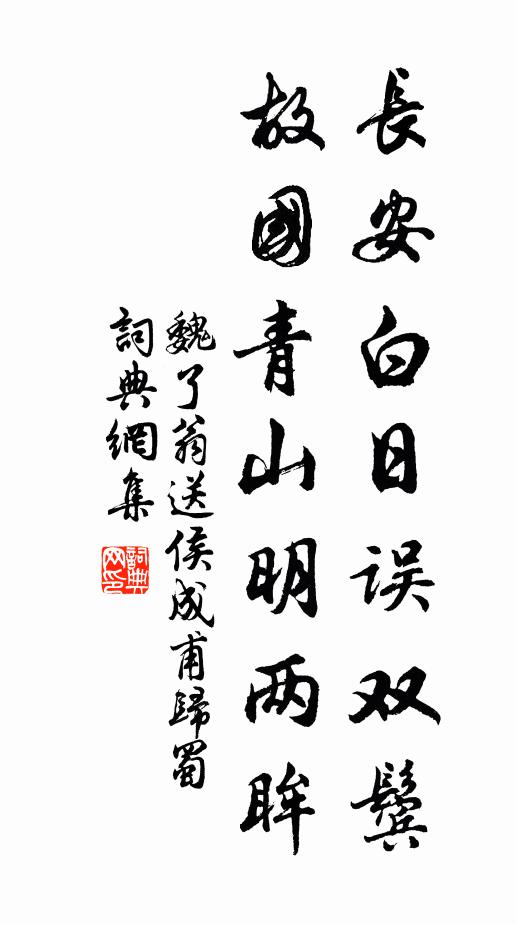 長安白日误双鬓
故國青山明两眸
魏了翁送侯成甫歸蜀
詞典網集
詞典网印